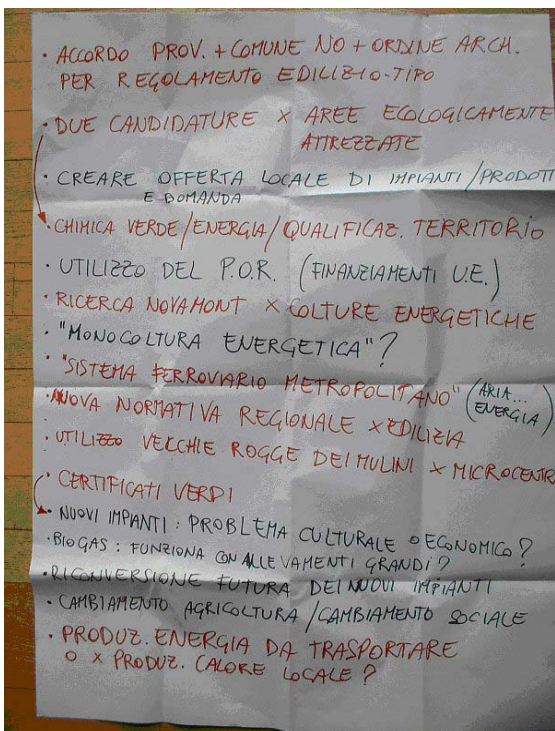 · ACCORDO PROV. + COMUNE NO + ORDINE ARCH.
PER REGOLAMENTO EDILIZIO-TIPO
· DUE CANDIDATURE × AREE ECOLOGICAMENTE
ATTREZZATE
· CREARE OFFERTA LOCALE DI IMPIANTI/PRODOTTI
E DOMANDA
· CHIMICA VERDE/ENERGIA/QUALIFICAZ. TERRITORIO
· UTILIZZO DEL P.O.R. (FINANZIAMENTI U.E.)
· RICERCA NOVAMONT × COLTURE ENERGETICHE
· "MONOCOLTURA ENERGETICA"?
· "SISTEMA FERROVIARIO METROPOLITANO" (ARIA... ENERGIA)
· NUOVA NORMATIVA REGIONALE × EDILIZIA
· UTILIZZO VECCHIE ROGGE DEI MULINI × MICROCENTR
· CERTIFICATI VERDI
· NUOVI IMPIANTI : PROBLEMA CULTURALE O ECONOMICO?
· BIOGAS : FUNZIONA CON ALLEVAMENTI GRANDI?
· RICONVERSIONE FUTURA DEI NUOVI IMPIANTI
· CAMBIAMENTO AGRICOLTURA/CAMBIAMENTO SOCIALE
· PRODUZ. ENERGIA DA TRASPORTARE
O × PRODUZ. CALORE LOCALE?